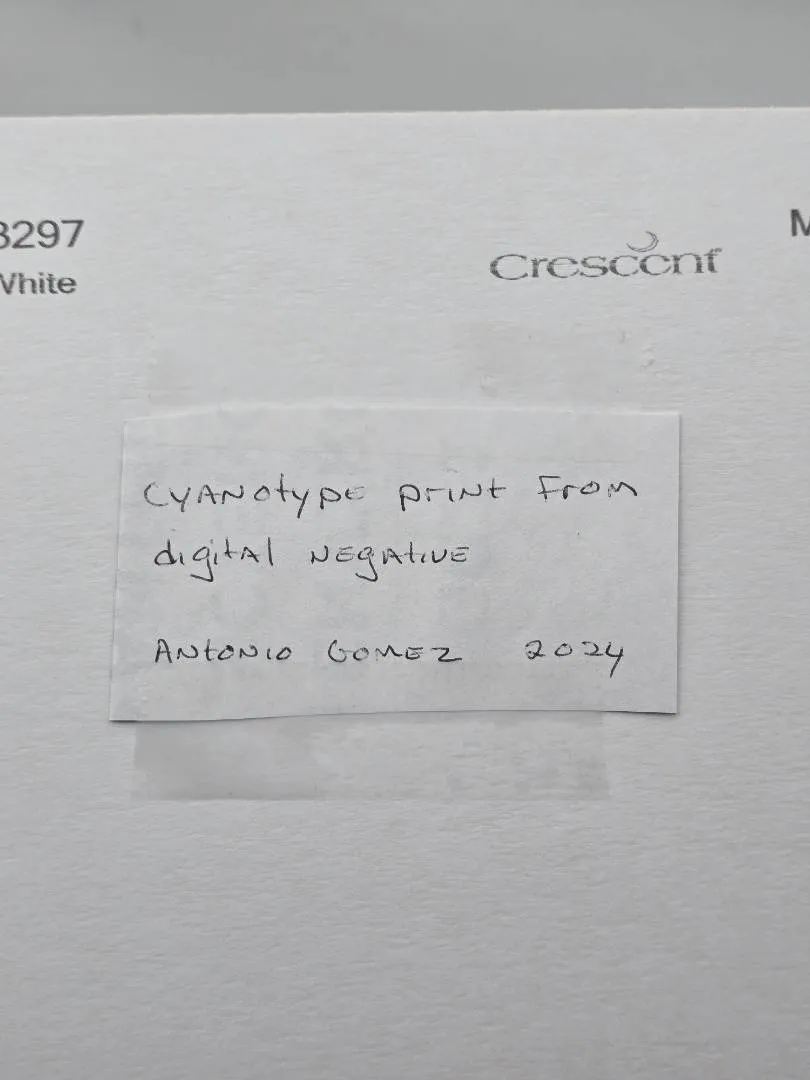 3297
White
Crescent
M
CYANOtype print From
digital NEGATIVE
ANTONIO GOMEZ 2024